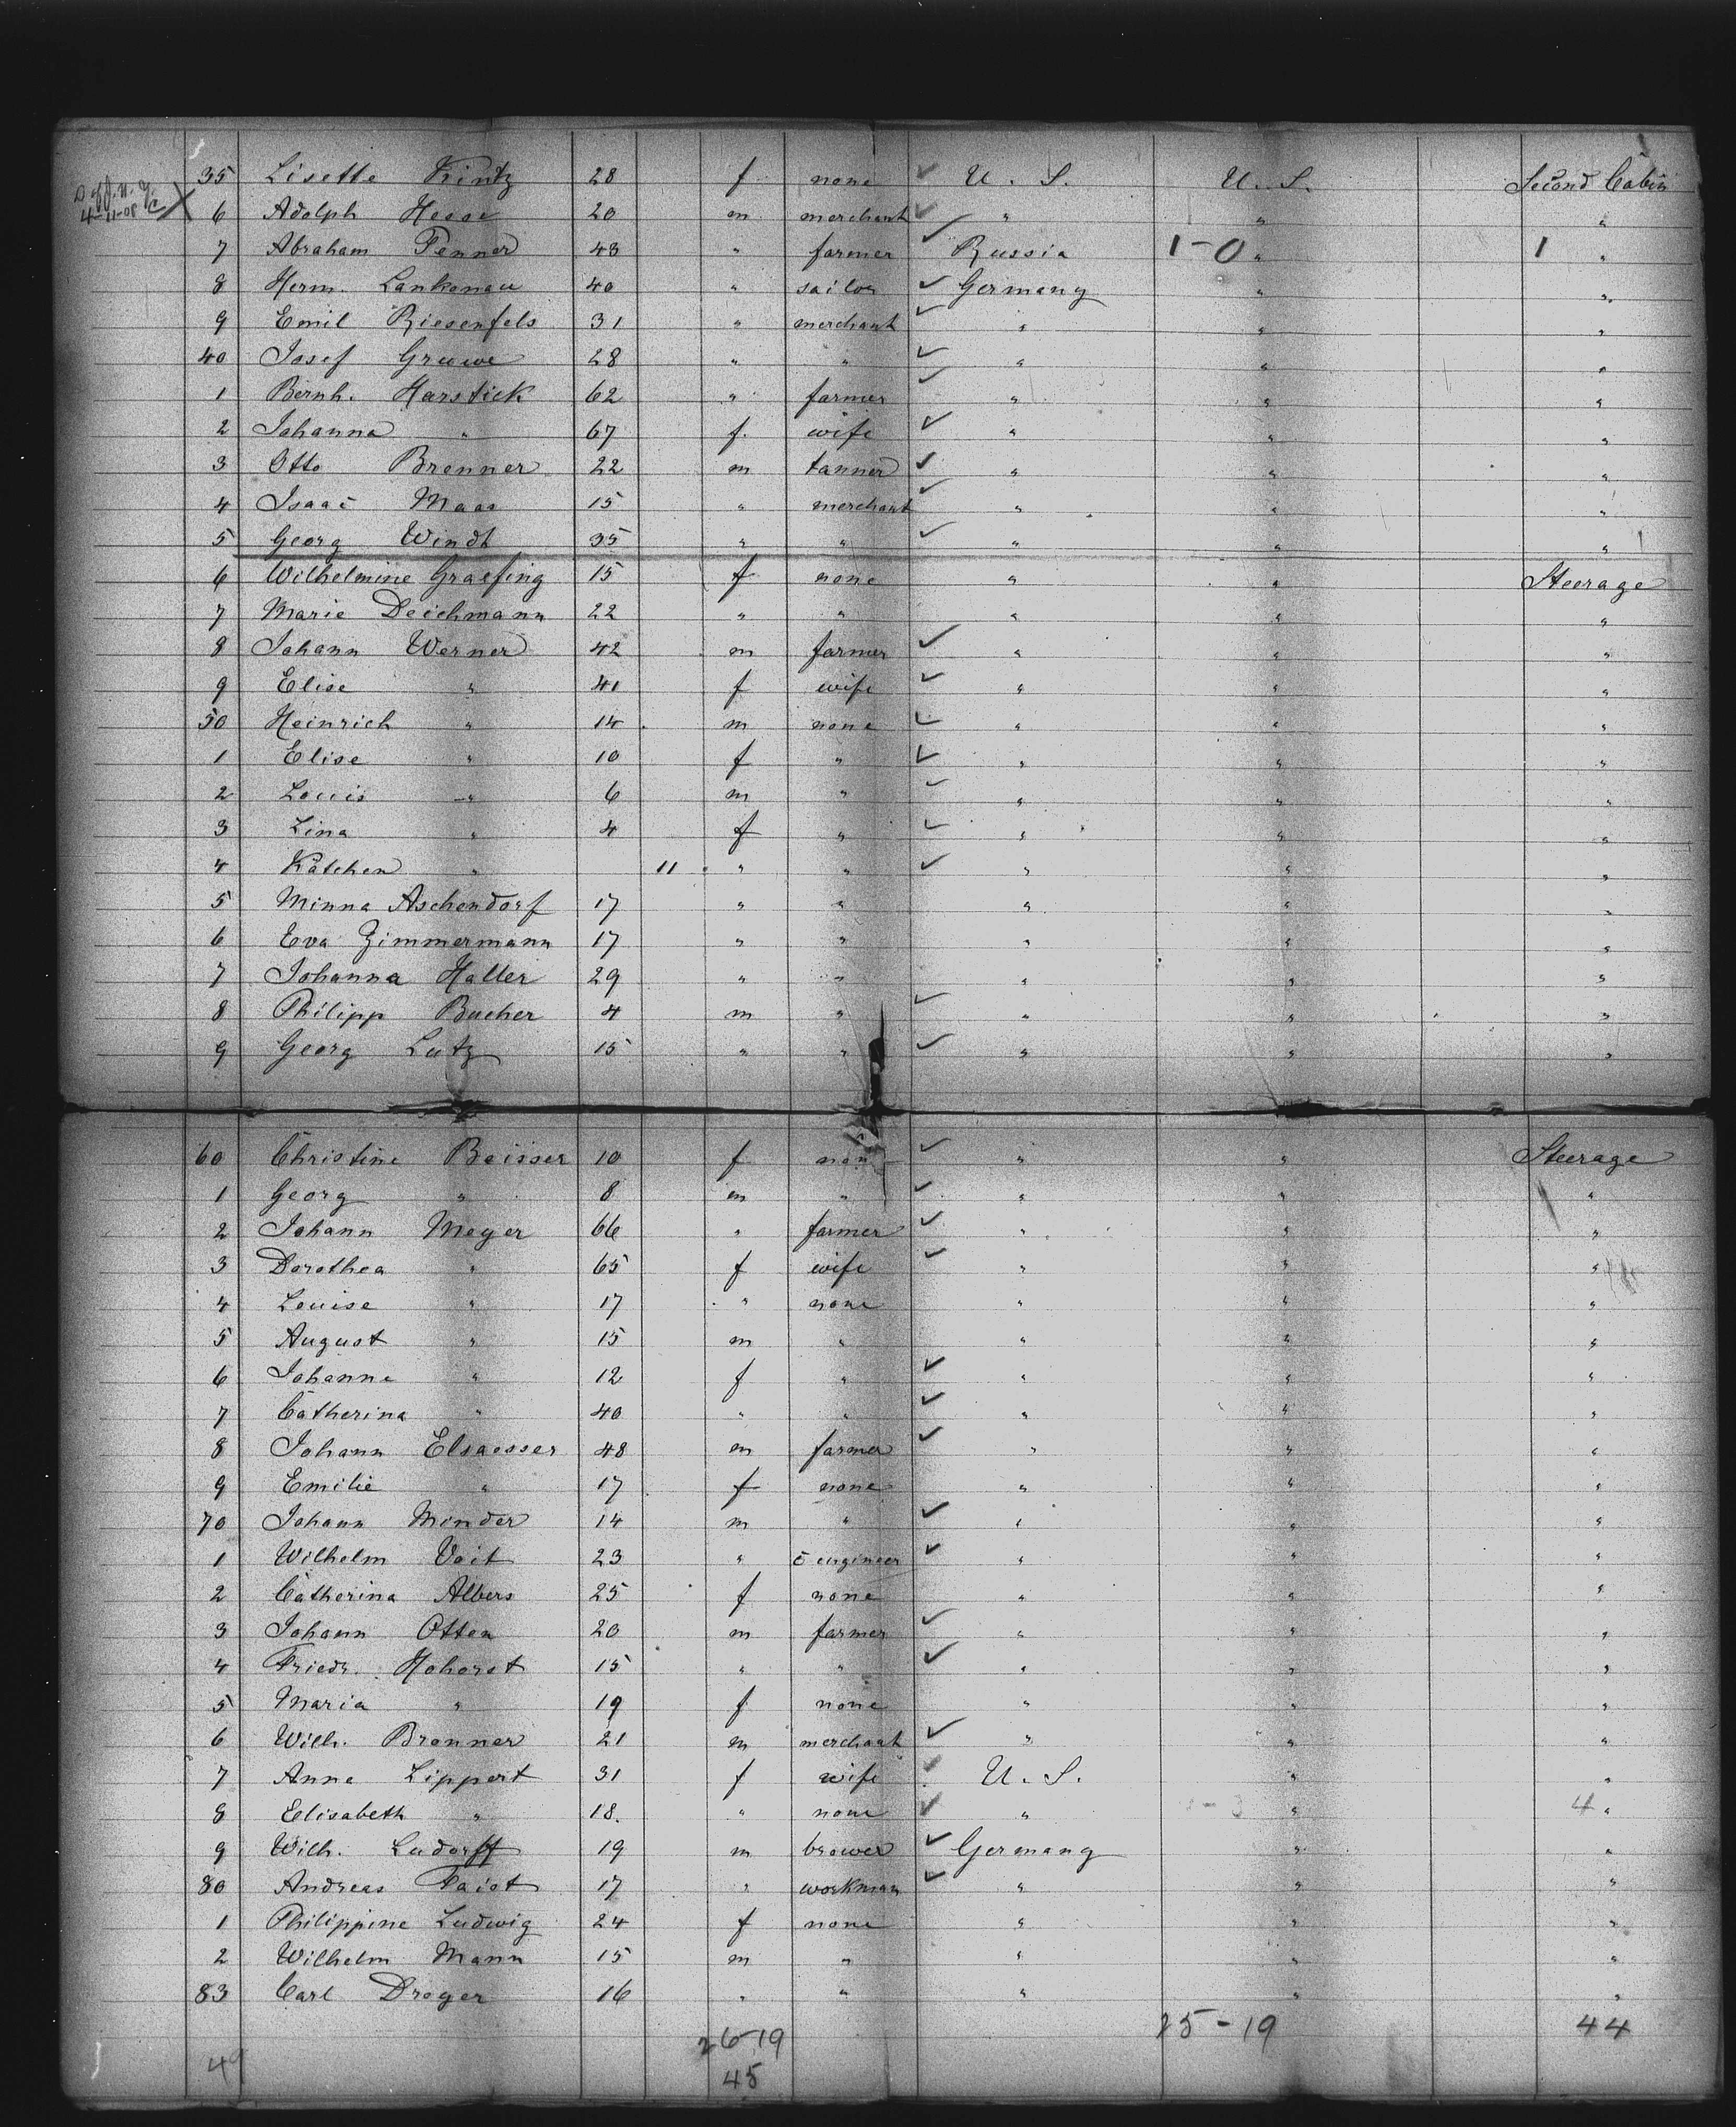 35 Lisette Kintz 28 f none U. S. U. S. Second Cabin
4-11-08 X 6 Adolph Hesse 20 m merchant " " "
7 Abraham Penner 43 " farmer Russia 1-0 " 1 "
8 Herm. Lankenau 40 " sailor Germany " "
9 Emil Riesenfels 31 " merchant " " "
40 Josef Gruwe 28 " " " " "
1 Bernh. Harstick 62 " farmer " " "
2 Johanna " 67 f. wife " " "
3 Otto Brenner 22 m tanner " " "
4 Isaac Maas 15 " merchant " " "
5 Georg Windt 35 " " " " "
6 Wilhelmine Graefing 15 f none " " Steerage
7 Marie Deichmann 22 " " " " "
8 Johann Werner 42 m farmer " " "
9 Elise " 41 f wife " " "
50 Heinrich " 14 m none " " "
1 Elise " 10 f " " " "
2 Louis " 6 m " " " "
3 Lina " 4 f " " " "
4 Kätchen " 11 " " " " "
5 Minna Aschendorf 17 " " " " "
6 Eva Zimmermann 17 " " " " "
7 Johanna Haller 29 " " " " "
8 Philipp Bucher 4 m " " " "
9 Georg Lutz 15 " " " " "
60 Christine Beisser 10 f none " " Steerage
1 Georg " 8 m " " " "
2 Johann Meyer 66 " farmer " " "
3 Dorothea " 65 f wife " " "
4 Louise " 17 " none " " "
5 August " 15 m " " " "
6 Johanne " 12 f " " " "
7 Catherina " 40 " " " " "
8 Johann Elsaesser 48 m farmer " " "
9 Emilie " 17 f none " " "
70 Johann Minder 14 m " " " "
1 Wilhelm Voit 23 " engineer " " "
2 Catherina Albers 25 f none " " "
3 Johann Otten 20 m farmer " " "
4 Friedr. Hohorst 15 " " " " "
5 Maria " 19 f none " " "
6 Wilh. Brenner 21 m merchant " " "
7 Anne Lippert 31 f wife U. S. " "
8 Elisabeth " 18. " none " " 4 "
9 Wilh. Ludorff 19 m brewer Germany " "
80 Andreas Faist 17 " workman " " "
1 Philippine Ludwig 24 f none " " "
2 Wilhelm Mann 15 m " " " "
83 Carl Dreyer 16 " " " " "
26-19 25-19 44
49 45